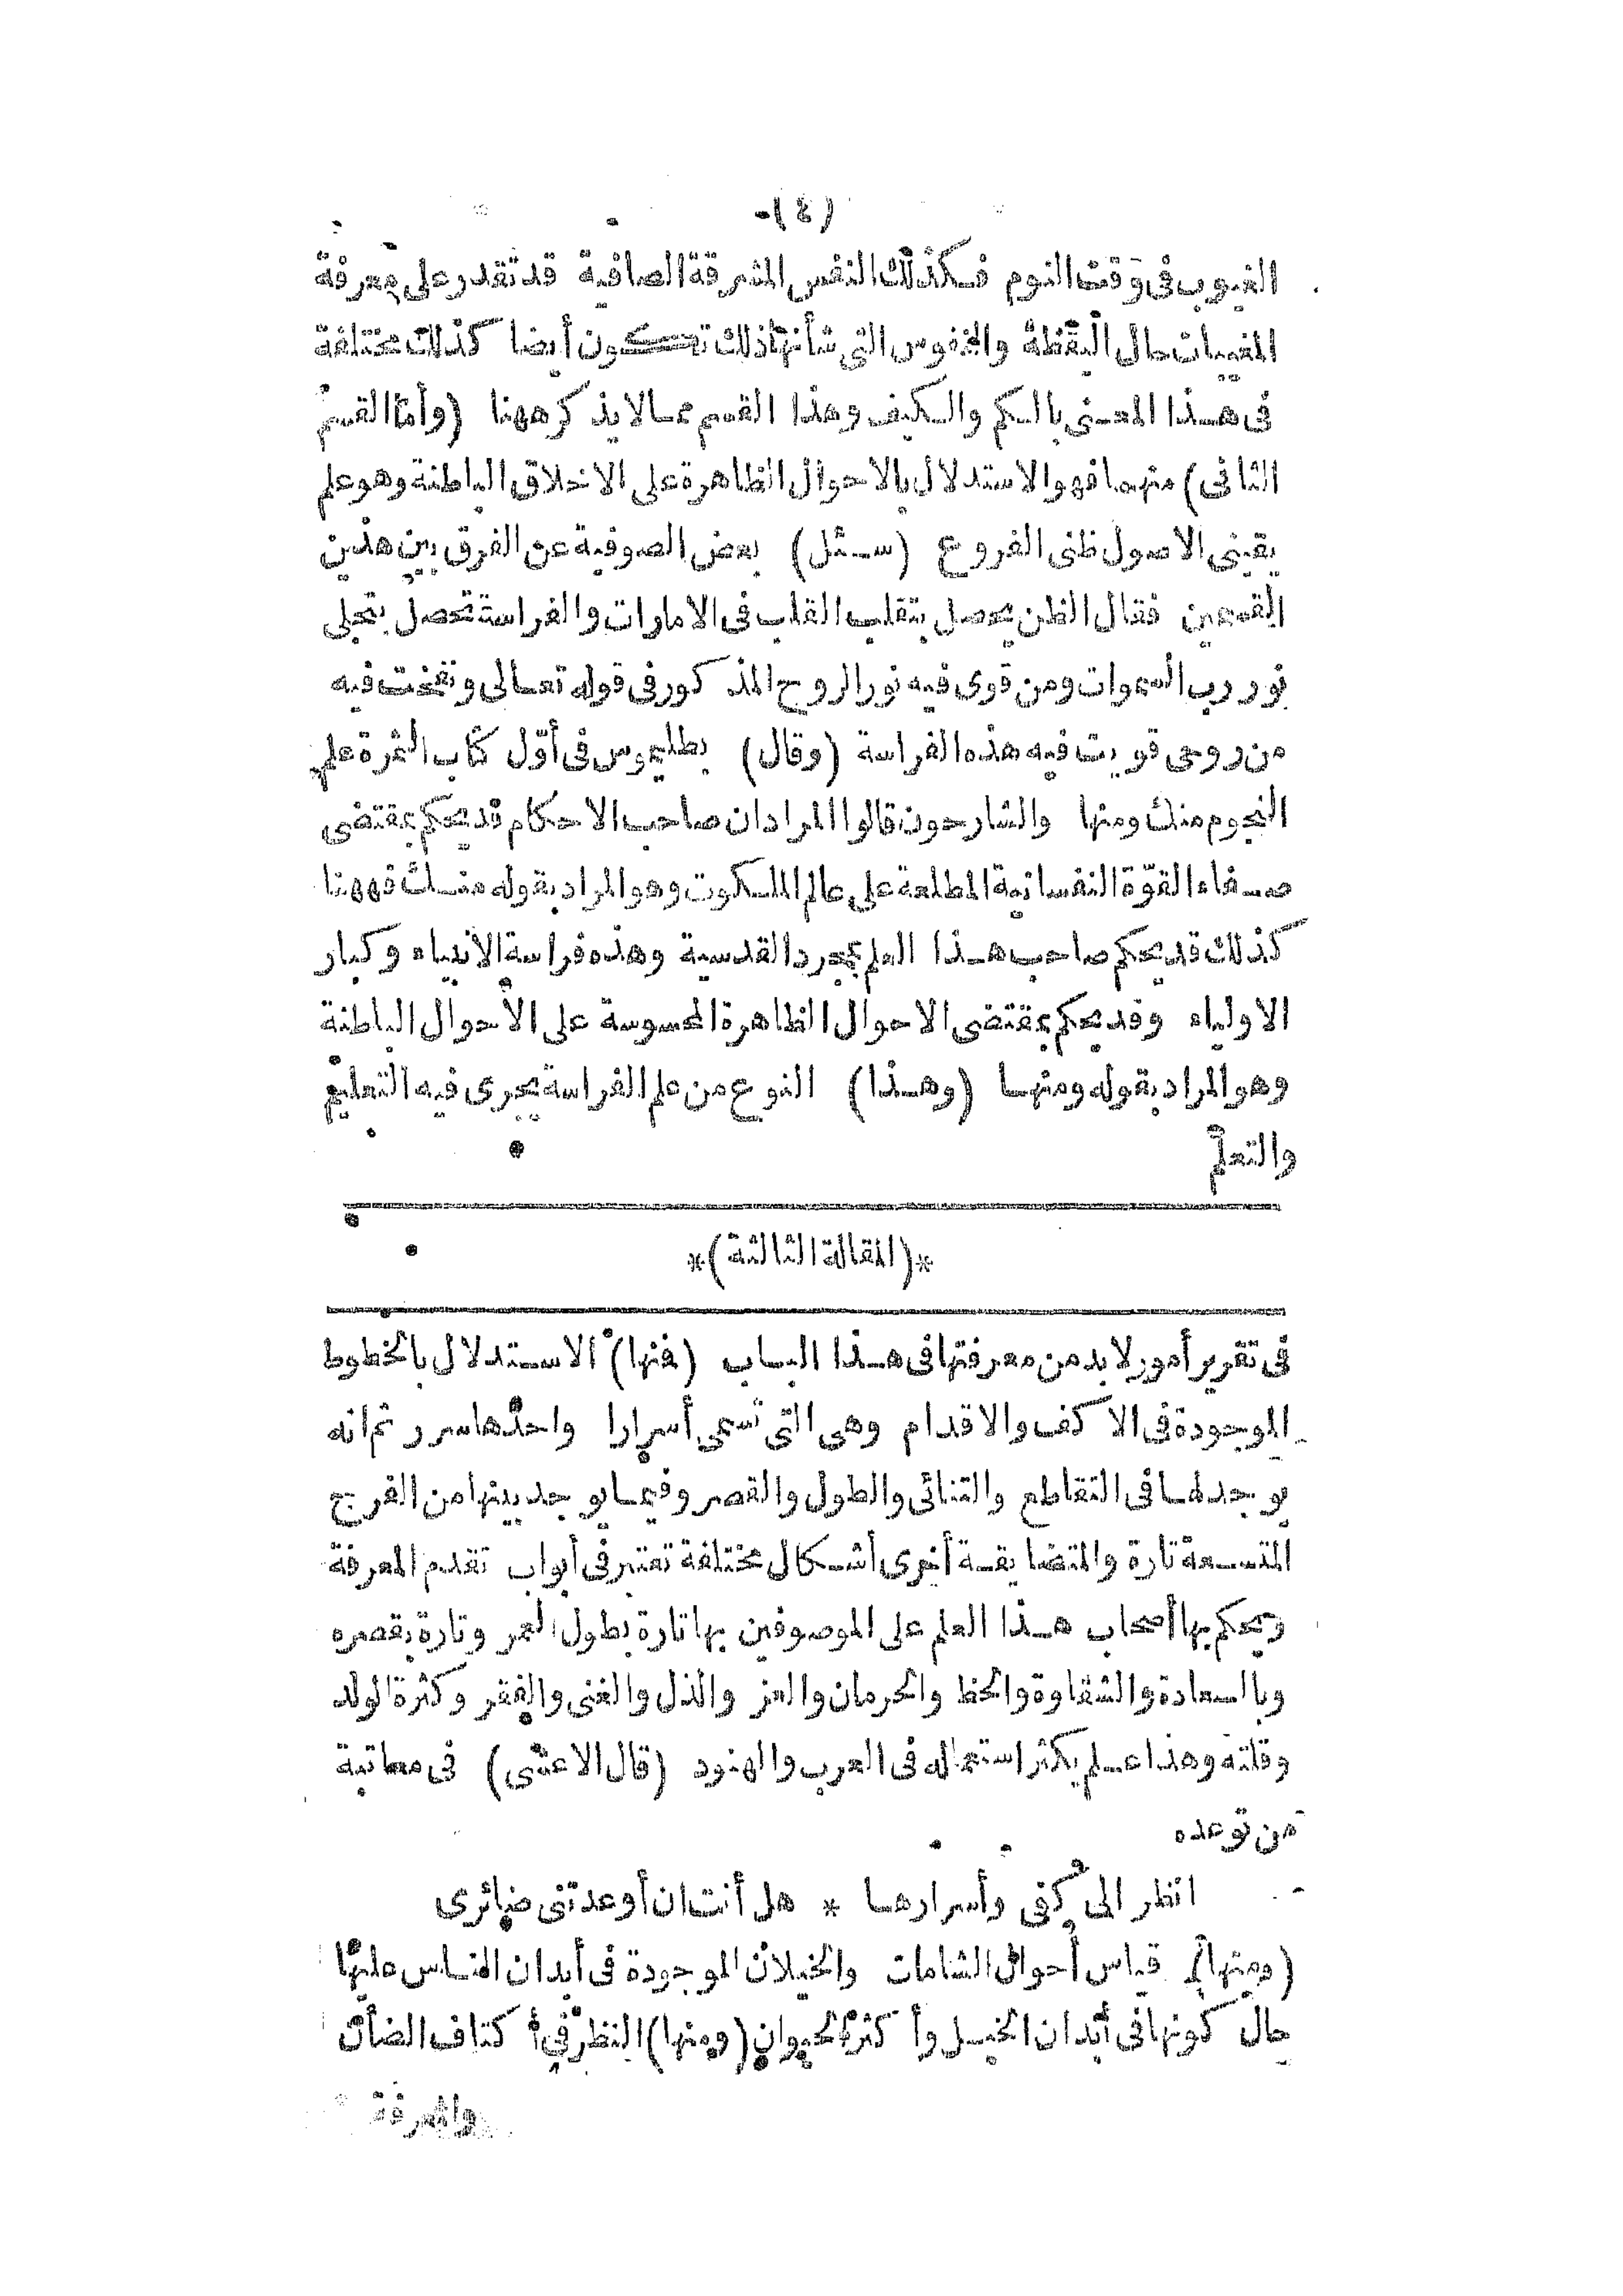 (٤)
الغيوب فى وقت النوم فكذلك النفس المشرقة الصافية قد تقدر على معرفة
المغيبات حال اليقظة والنفوس التى شأنها ذلك تكون أيضا كذلك مختلفة
فى هذا المعنى بالكم والكيف وهذا القسم مما لا يذكر ههنا (وأما القسم
الثانى) منهما فهو الاستدلال بالاحوال الظاهرة على الاخلاق الباطنة وهو علم
يقينى الاصول ظنى الفروع (سئل) بعض الصوفية عن الفرق بين هذين
القسمين فقال الظن يحصل بتقلب القلب فى الامارات والفراسة تحصل بتجلى
نور رب السموات ومن قوى فيه نور الروح المذكور فى قوله تعالى ونفخت فيه
من روحى قويت فيه هذه الفراسة (وقال) بطليموس فى أوّل كتاب الثمرة علم
النجوم منك ومنها والشارحون قالوا المراد ان صاحب الاحكام قد يحكم بمقتضى
صفاء القوّة النفسانية المطلعة على عالم الملكوت وهو المراد بقوله منك فههنا
كذلك قد يحكم صاحب هذا العلم بمجرد القدسية وهذه فراسة الانبياء وكبار
الاولياء وقد يحكم بمقتضى الاحوال الظاهرة المحسوسة على الاحوال الباطنة
وهو المراد بقوله ومنها (وهذا) النوع من علم الفراسة يجرى فيه التعليم
والتعلم
*(المقالة الثالثة)*
فى تقرير أمور لا بد من معرفتها فى هذا الباب (فمنها) الاستدلال بالخطوط
الموجودة فى الاكف والاقدام وهى التى تسمى أسرارا واحدها سرر ثم انه
يوجد لها فى التقاطع والتنائى والطول والقصر وفيما يوجد بينها من الفرج
المتسعة تارة والمتضايقة أخرى أشكال مختلفة تعتبر فى أبواب تقدم المعرفة
ويحكم بها أصحاب هذا العلم على الموصوفين بها تارة بطول العمر وتارة بقصره
وبالسعادة والشقاوة والحظ والحرمان والعز والذل والغنى والفقر وكثرة الولد
وقلته وهذا علم يكثر استعماله فى العرب والهنود (قال الاعشى) فى معاتبة
من توعده
انظر الى كفى وأسرارها * هل أنت ان أوعدتنى ضائرى
(ومنها) قياس أحوال الشامات والخيلان الموجودة فى أبدان الناس عليها
حال كونها فى أبدان الخيل وأكثر الحيوان (ومنها) النظر فى أكتاف الضأن
والمعرفة